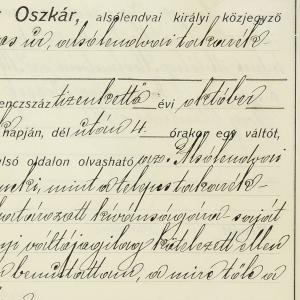 Oszkár, alsólendvai királyi közjegyző
úr, alsólendvai takarék-
enczszáz tizenkettő évi október
napján, dél után 4 órakon egy váltót,
lsó oldalon olvasható az Alsólendvai
neki, mint a telepes takarék-
határozott kívánságára saját
váltójogilag kötelezett ellen
bemutattam, a mire tőle a